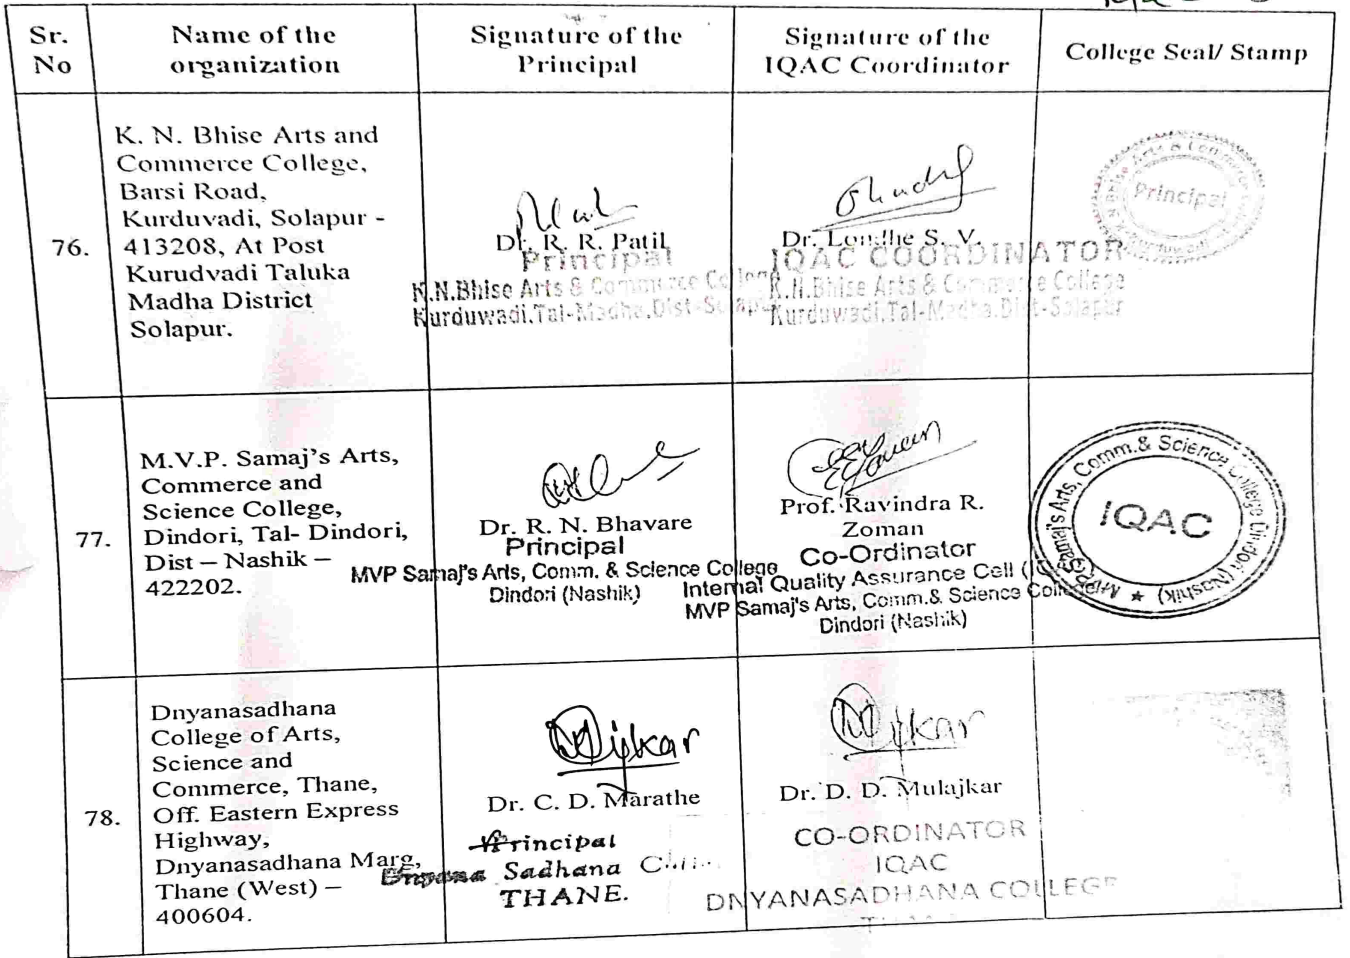 Sr.
No
Name of the
organization
Signature of the
Principal
Signature of the
IQAC Coordinator
College Seal/ Stamp
76.
K. N. Bhise Arts and
Commerce College,
Barsi Road,
Kurduvadi, Solapur -
413208, At Post
Kurudvadi Taluka
Madha District
Solapur.
Dr. R. R. Patil
Principal
K.N.Bhise Arts & Commerce College
Kurduwadi.Tal-Madha.Dist-Solapur
Dr. Londhe S. V.
IQAC COORDINATOR
K.N.Bhise Arts & Commerce College
Kurduwadi.Tal-Madha.Dist-Solapur
Principal
77.
M.V.P. Samaj's Arts,
Commerce and
Science College,
Dindori, Tal- Dindori,
Dist – Nashik –
422202.
Dr. R. N. Bhavare
Principal
MVP Samaj's Arts, Comm. & Science College
Dindori (Nashik)
Prof. Ravindra R.
Zoman
Co-Ordinator
Internal Quality Assurance Cell
MVP Samaj's Arts, Comm.& Science College
Dindori (Nashik)
MVP Samaj's Arts, Comm.& Science College Dindori (Nashik) ★
IQAC
78.
Dnyanasadhana
College of Arts,
Science and
Commerce, Thane,
Off. Eastern Express
Highway,
Dnyanasadhana Marg,
Thane (West) –
400604.
Dr. C. D. Marathe
Principal
Sadhana
THANE.
Dr. D. D. Mulajkar
CO-ORDINATOR
IQAC
DNYANASADHANA COLLEGE